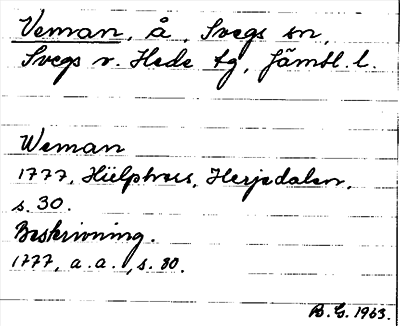 Veman, å, Svegs sn,
Svegs o. Hede tg, Jämtl. l.
Weman
1777, Hülphers, Herjedalen,
s. 30.
Beskrivning.
1777, a. a., s. 80.
B. G. 1963.